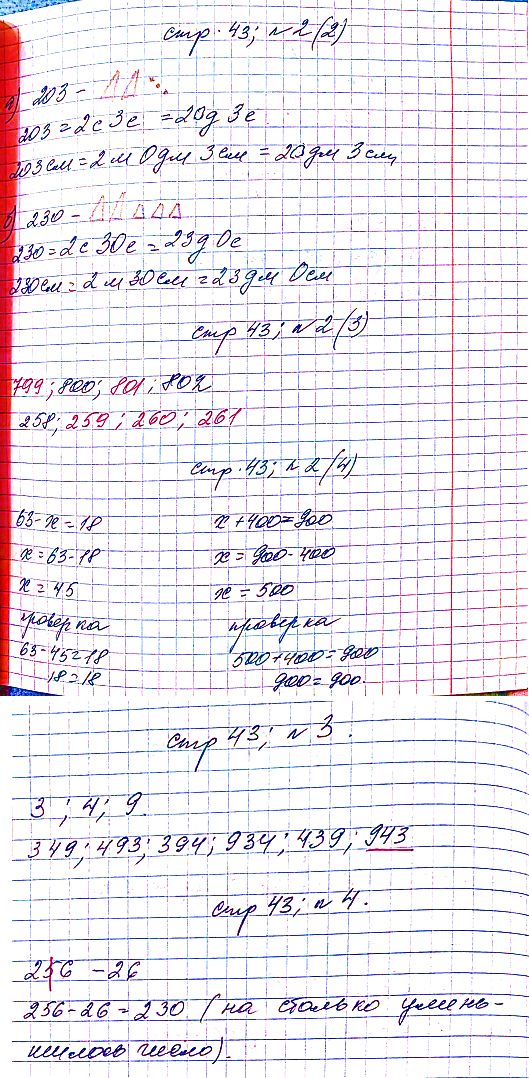 стр. 43; №2(2)
а) 203 -
203 = 2с 3е = 20д 3е
203см = 2м 0дм 3см = 20дм 3см
б) 230 -
230 = 2с 30е = 23д 0е
230см = 2м 30см = 23дм 0см
стр 43; №2(3)
799; 800; 801; 802
258; 259; 260; 261
стр. 43; №2(4)
63 - х = 18 х + 400 = 900
х = 63 - 18 х = 900 - 400
х = 45 х = 500
проверка проверка
63 - 45 = 18 500 + 400 = 900
18 = 18 900 = 900.
стр 43; №3.
3; 4; 9.
349; 493; 394; 934; 439; 943
стр 43; №4.
256 - 26
256 - 26 = 230 (на столько умень-
шилось число).